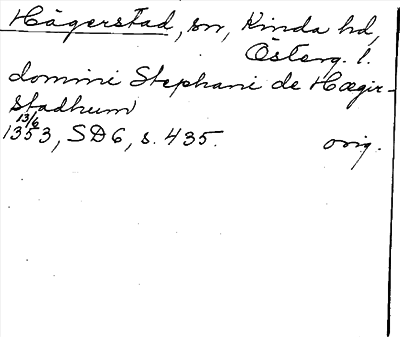 Hägerstad, sn, Kinda hd,
Österg. l.
domini Stephani de Hægir-
stadhum
13/6
1353, SD6, s. 435. orig.